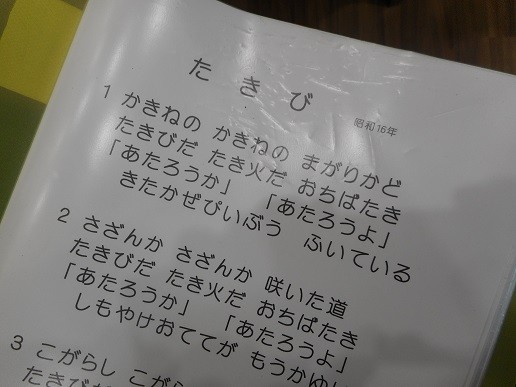 たきび
昭和16年
1 かきねの かきねの まがりかど
たきびだ たき火だ おちばたき
「あたろうか」 「あたろうよ」
きたかぜぴいぷう ふいている
2 さざんか さざんか 咲いた道
たきびだ たき火だ おちばたき
「あたろうか」 「あたろうよ」
しもやけおててが もうかゆ
3 こがらし こがら
たきび